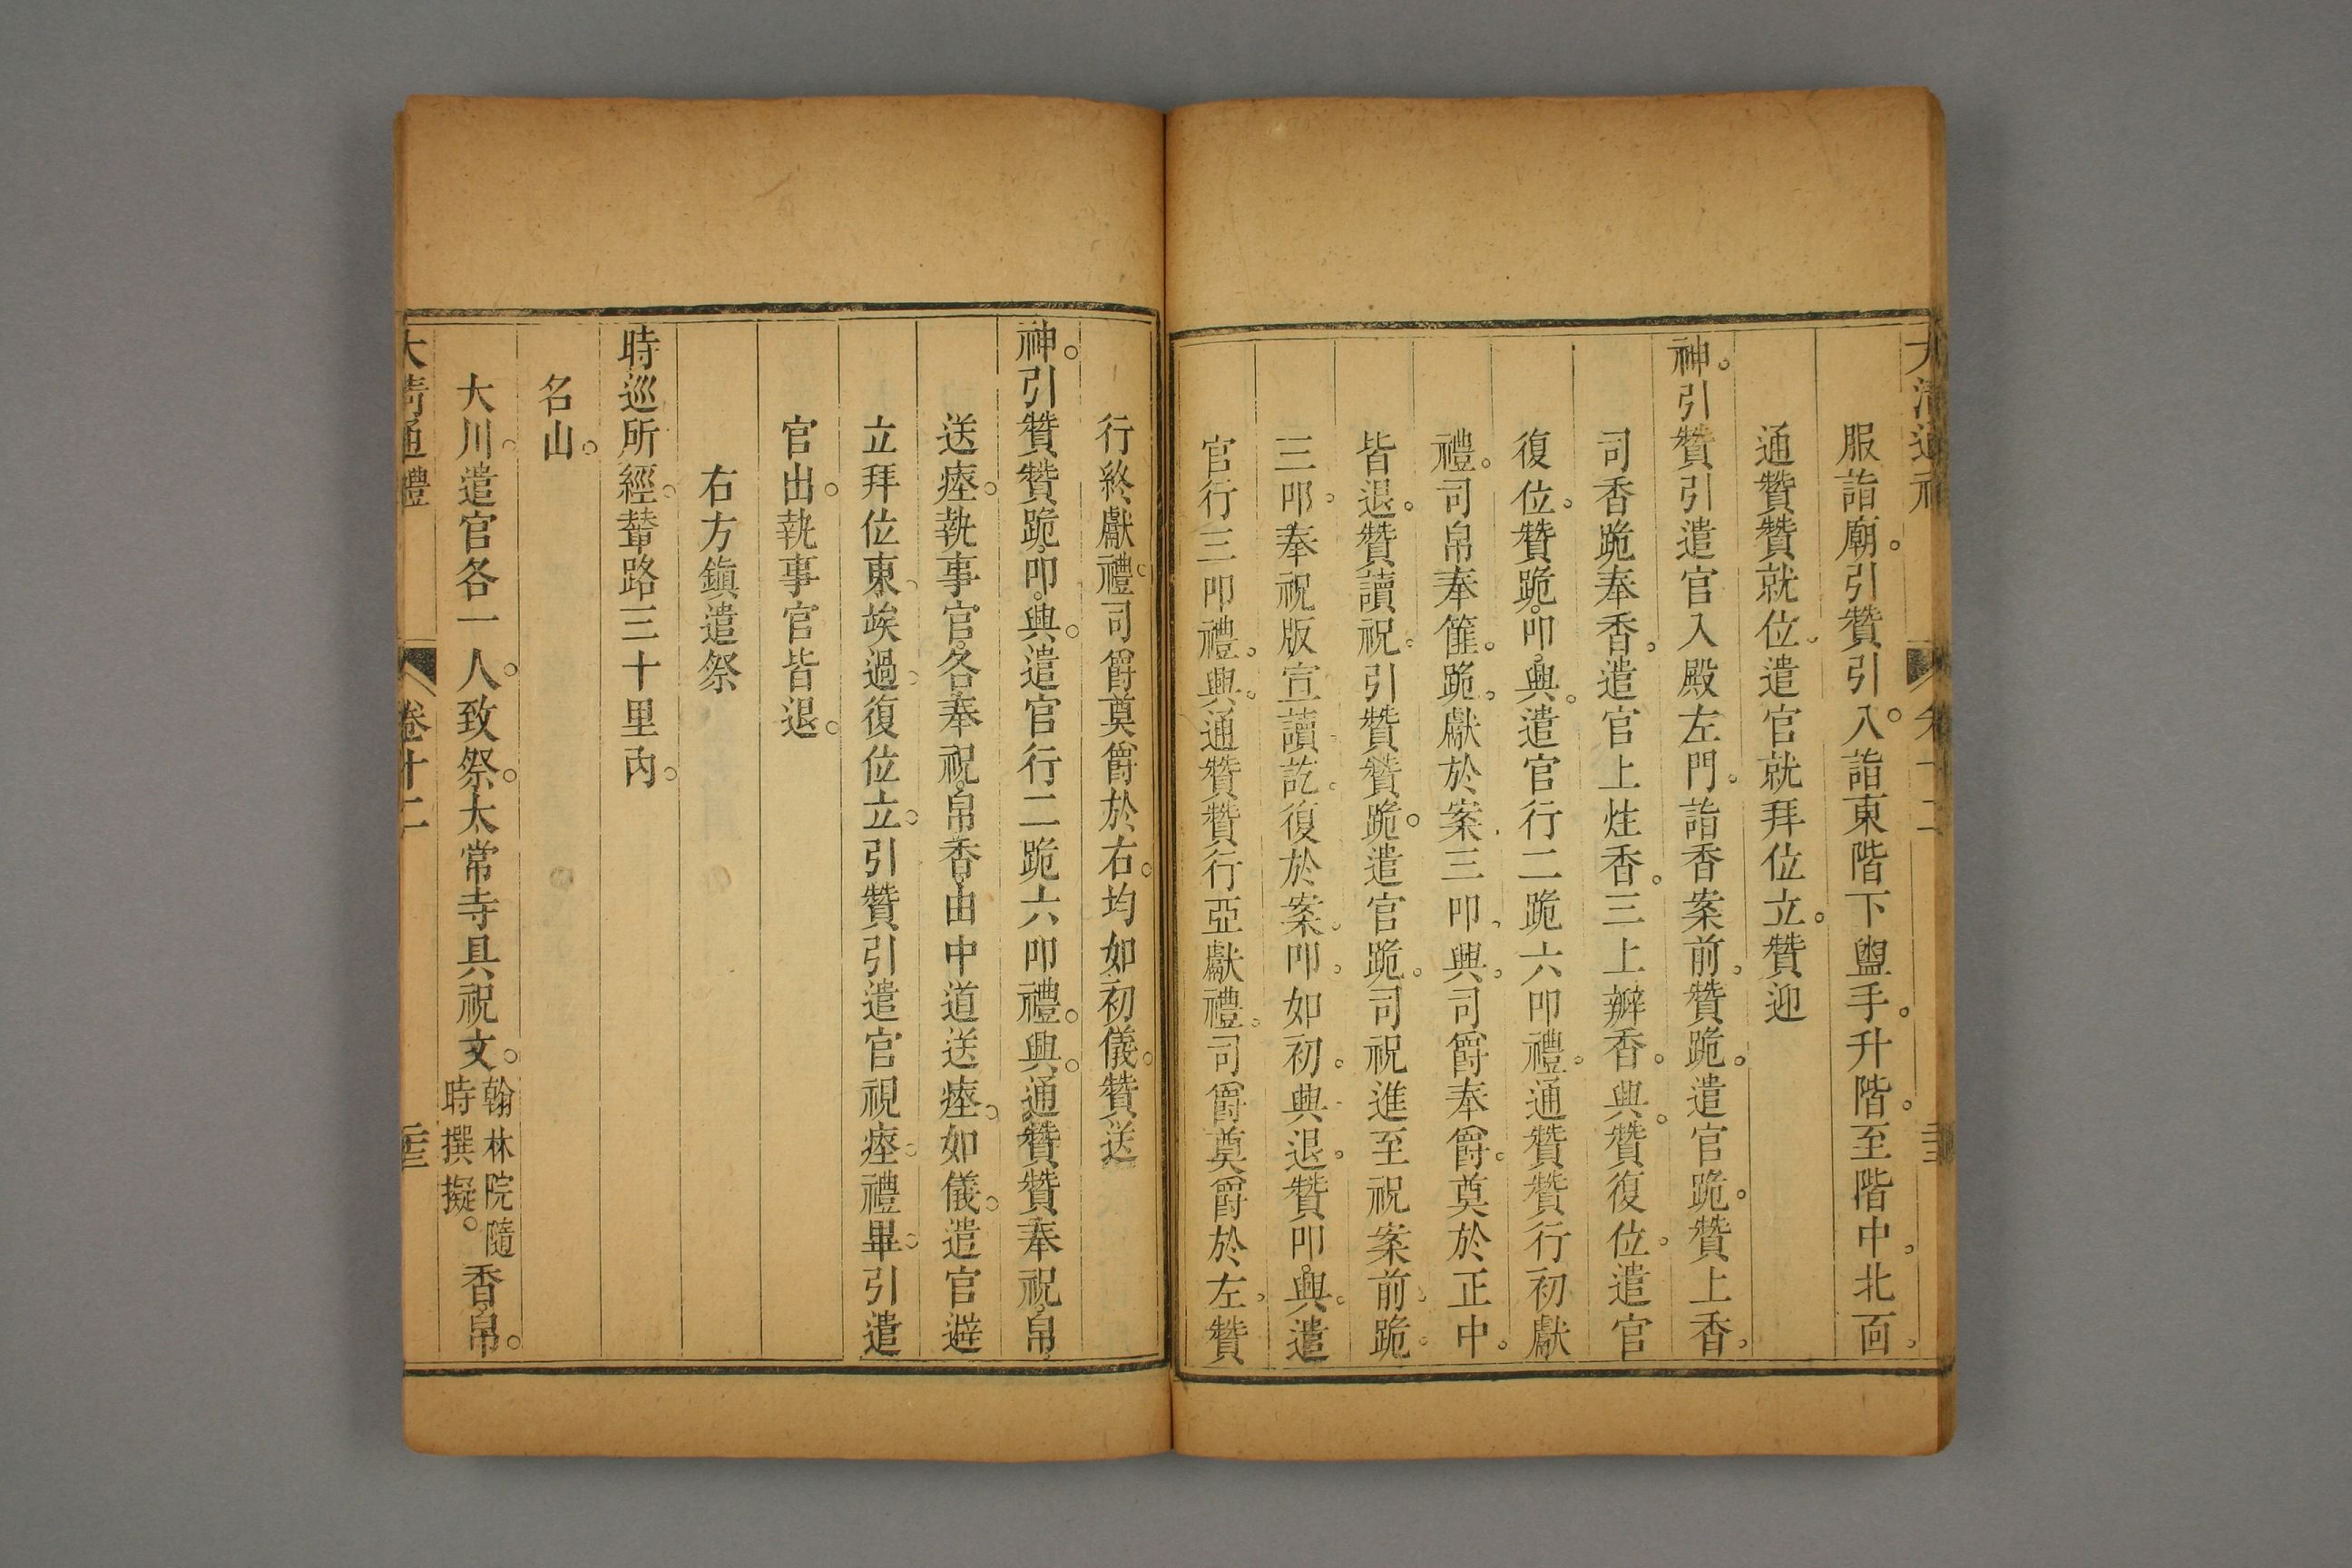 大清通禮 卷十二
服詣廟。引贊引。入。詣東階下盥手。升階。至階中。北面。
通贊贊就位。遣官就拜位立。贊迎
神。引贊引遣官入殿左門。詣香案前。贊跪。遣官跪。贊上香。
司香跪奉香。遣官上炷香。三上瓣香。興。贊復位。遣官
復位。贊跪。叩。興。遣官行二跪六叩禮。通贊贊行初獻
禮。司帛奉篚。跪。獻於案。三叩。興。司爵奉爵。奠於正中。
皆退。贊讀祝。引贊贊跪。遣官跪。司祝進至祝案前。跪。
三叩。奉祝版宣讀訖。復於案。叩。如初。興。退。贊叩。興。遣
官行三叩禮。興。通贊贊行亞獻禮。司爵奠爵於左。贊
行終獻禮。司爵奠爵於右。均如初儀。贊送
神。引贊贊跪。叩。興。遣官行二跪六叩禮。興。通贊贊奉祝。帛。
送瘞。執事官。各奉祝。帛。香。由中道送瘞。如儀。遣官避
立拜位東。竢過。復位立。引贊引遣官視瘞。禮畢。引遣
官出。執事官皆退。
右方鎭遣祭
時巡所經。輦路三十里內。
名山。
大川。遣官各一人。致祭。太常寺具祝文。翰林院隨時撰擬。香。帛。
大清通禮 卷十二 三